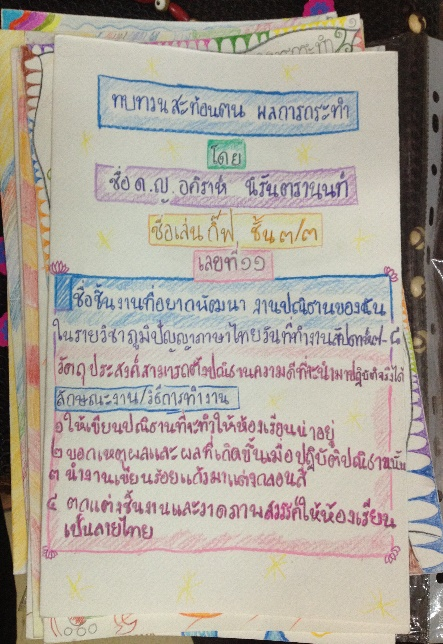 ทบทวนสะท้อนตน ผลการกระทำ
โดย
ชื่อ ด.ญ. อคิราห์ นิรันตรานนท์
ชื่อเล่น กิ๊ฟ ชั้น ๓/๓
เลขที่ ๑๑
ชื่อชิ้นงานที่อยากพัฒนา งานปณิธานของฉัน
ในรายวิชาภูมิปัญญาภาษาไทยวันที่ทำงานสัปดาห์๗-๘
วัตถุประสงค์สามารถตั้งปณิธานความดีที่จะนำมาปฏิบัติจริงได้
ลักษณะงาน/วิธีการทำงาน
๑ให้เขียนปณิธานที่จะทำให้ห้องเรียนน่าอยู่
๒ บอกเหตุผลและผลที่เกิดขึ้นเมื่อปฏิบัติปณิธานนั้น
๓ นำงานเขียนร้อยแก้วมาแต่งกลอนสี่
๔ ตกแต่งชิ้นงานและวาดภาพสวรรค์ให้ห้องเรียน
เป็นลายไทย